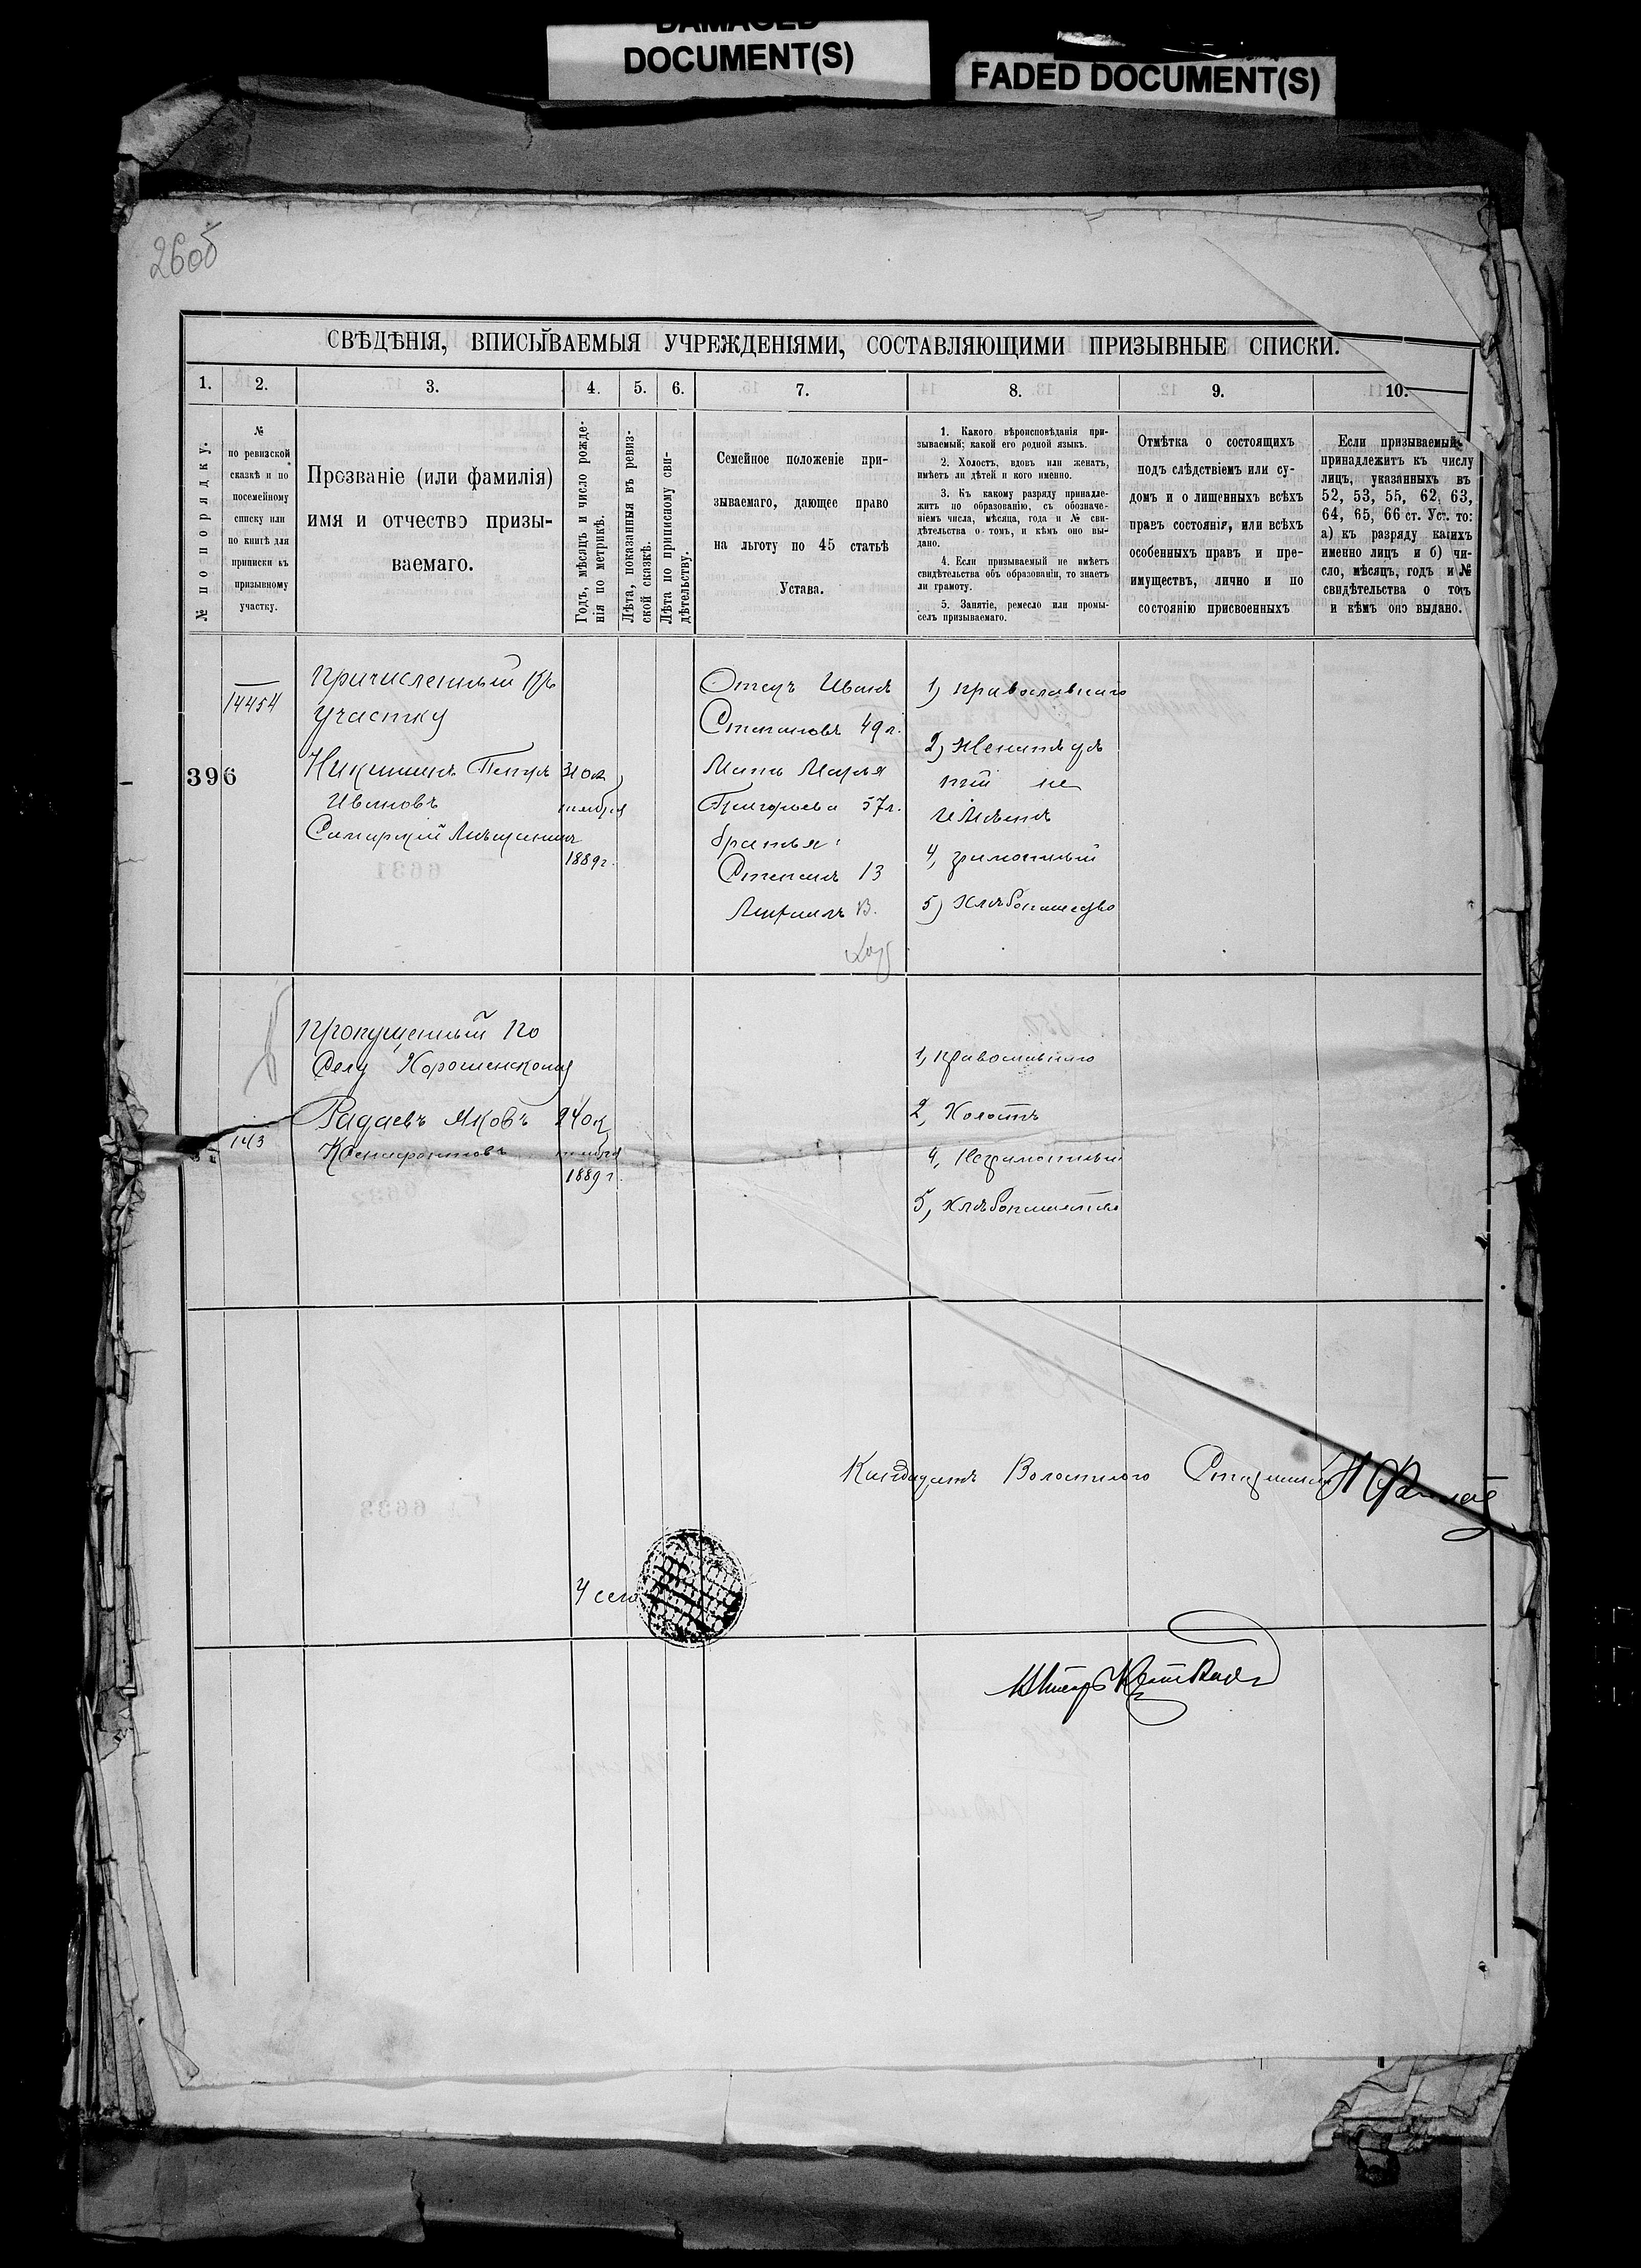 DAMAGED
DOCUMENT(S)
FADED DOCUMENT(S)
260б
СВѢДѢНІЯ, ВПИСЫВАЕМЫЯ УЧРЕЖДЕНІЯМИ, СОСТАВЛЯЮЩИМИ ПРИЗЫВНЫЕ СПИСКИ.
1. 2. 3. 4. 5. 6. 7. 8. 9. 10.
№ по порядку.
№
по ревизской
сказкѣ и по
посемейному
списку или
по книгѣ для
приписки къ
призывному
участку.
Прозваніе (или фамилія)
имя и отчество призы-
ваемаго.
Годъ, мѣсяцъ и число рожде-
нія по метрикѣ.
Лѣта, показанныя въ ревиз-
ской сказкѣ.
Лѣта по приписному сви-
дѣтельству.
Семейное положеніе при-
зываемаго, дающее право
на льготу по 45 статьѣ
Устава.
1. Какого вѣроисповѣданія при-
зываемый; какой его родной языкъ.
2. Холостъ, вдовъ или женатъ,
имѣетъ ли дѣтей и кого именно.
3. Къ какому разряду принадле-
житъ по образованію, съ обозначе-
ніемъ числа, мѣсяца, года и № сви-
дѣтельства о томъ, и кѣмъ оно вы-
дано.
4. Если призываемый не имѣетъ
свидѣтельства объ образованіи, то знаетъ
ли грамоту.
5. Занятіе, ремесло или промы-
селъ призываемаго.
Отмѣтка о состоящихъ
подъ слѣдствіемъ или су-
домъ и о лишенныхъ всѣхъ
правъ состоянія, или всѣхъ
особенныхъ правъ и пре-
имуществъ, лично и по
состоянію присвоенныхъ
Если призываемый
принадлежитъ къ числу
лицъ, указанныхъ въ
52, 53, 55, 62, 63,
64, 65, 66 ст. Уст. то:
а) къ разряду какихъ
именно лицъ и б) чи-
сло, мѣсяцъ, годъ и №
свидѣтельства о томъ
и кѣмъ оно выдано.
396
14454
Причисленный Къ
участку
Никишинъ Петръ
Ивановъ
Самарскій Мѣщанинъ
31 ок
тября
1889 г.
Отецъ Иванъ
Степановъ 49 л.
Мать Марья
Григорьева 57 л.
братья:
Степанъ 13
Михаилъ 8.
1, православнаго
2, Женатъ дѣ
тей не
имѣетъ
4, грамотный
5, Хлѣбопашество
143
Пропущенный по
Селу Хорошенскому
Радаевъ Яковъ
Ксенофонтовъ
24 ок
тября
1889 г.
1, православнаго
2, Холостъ
4, Неграмотный
5, Хлѣбопашество
Кандидатъ Волостного Старшины
Ч село
Писарь